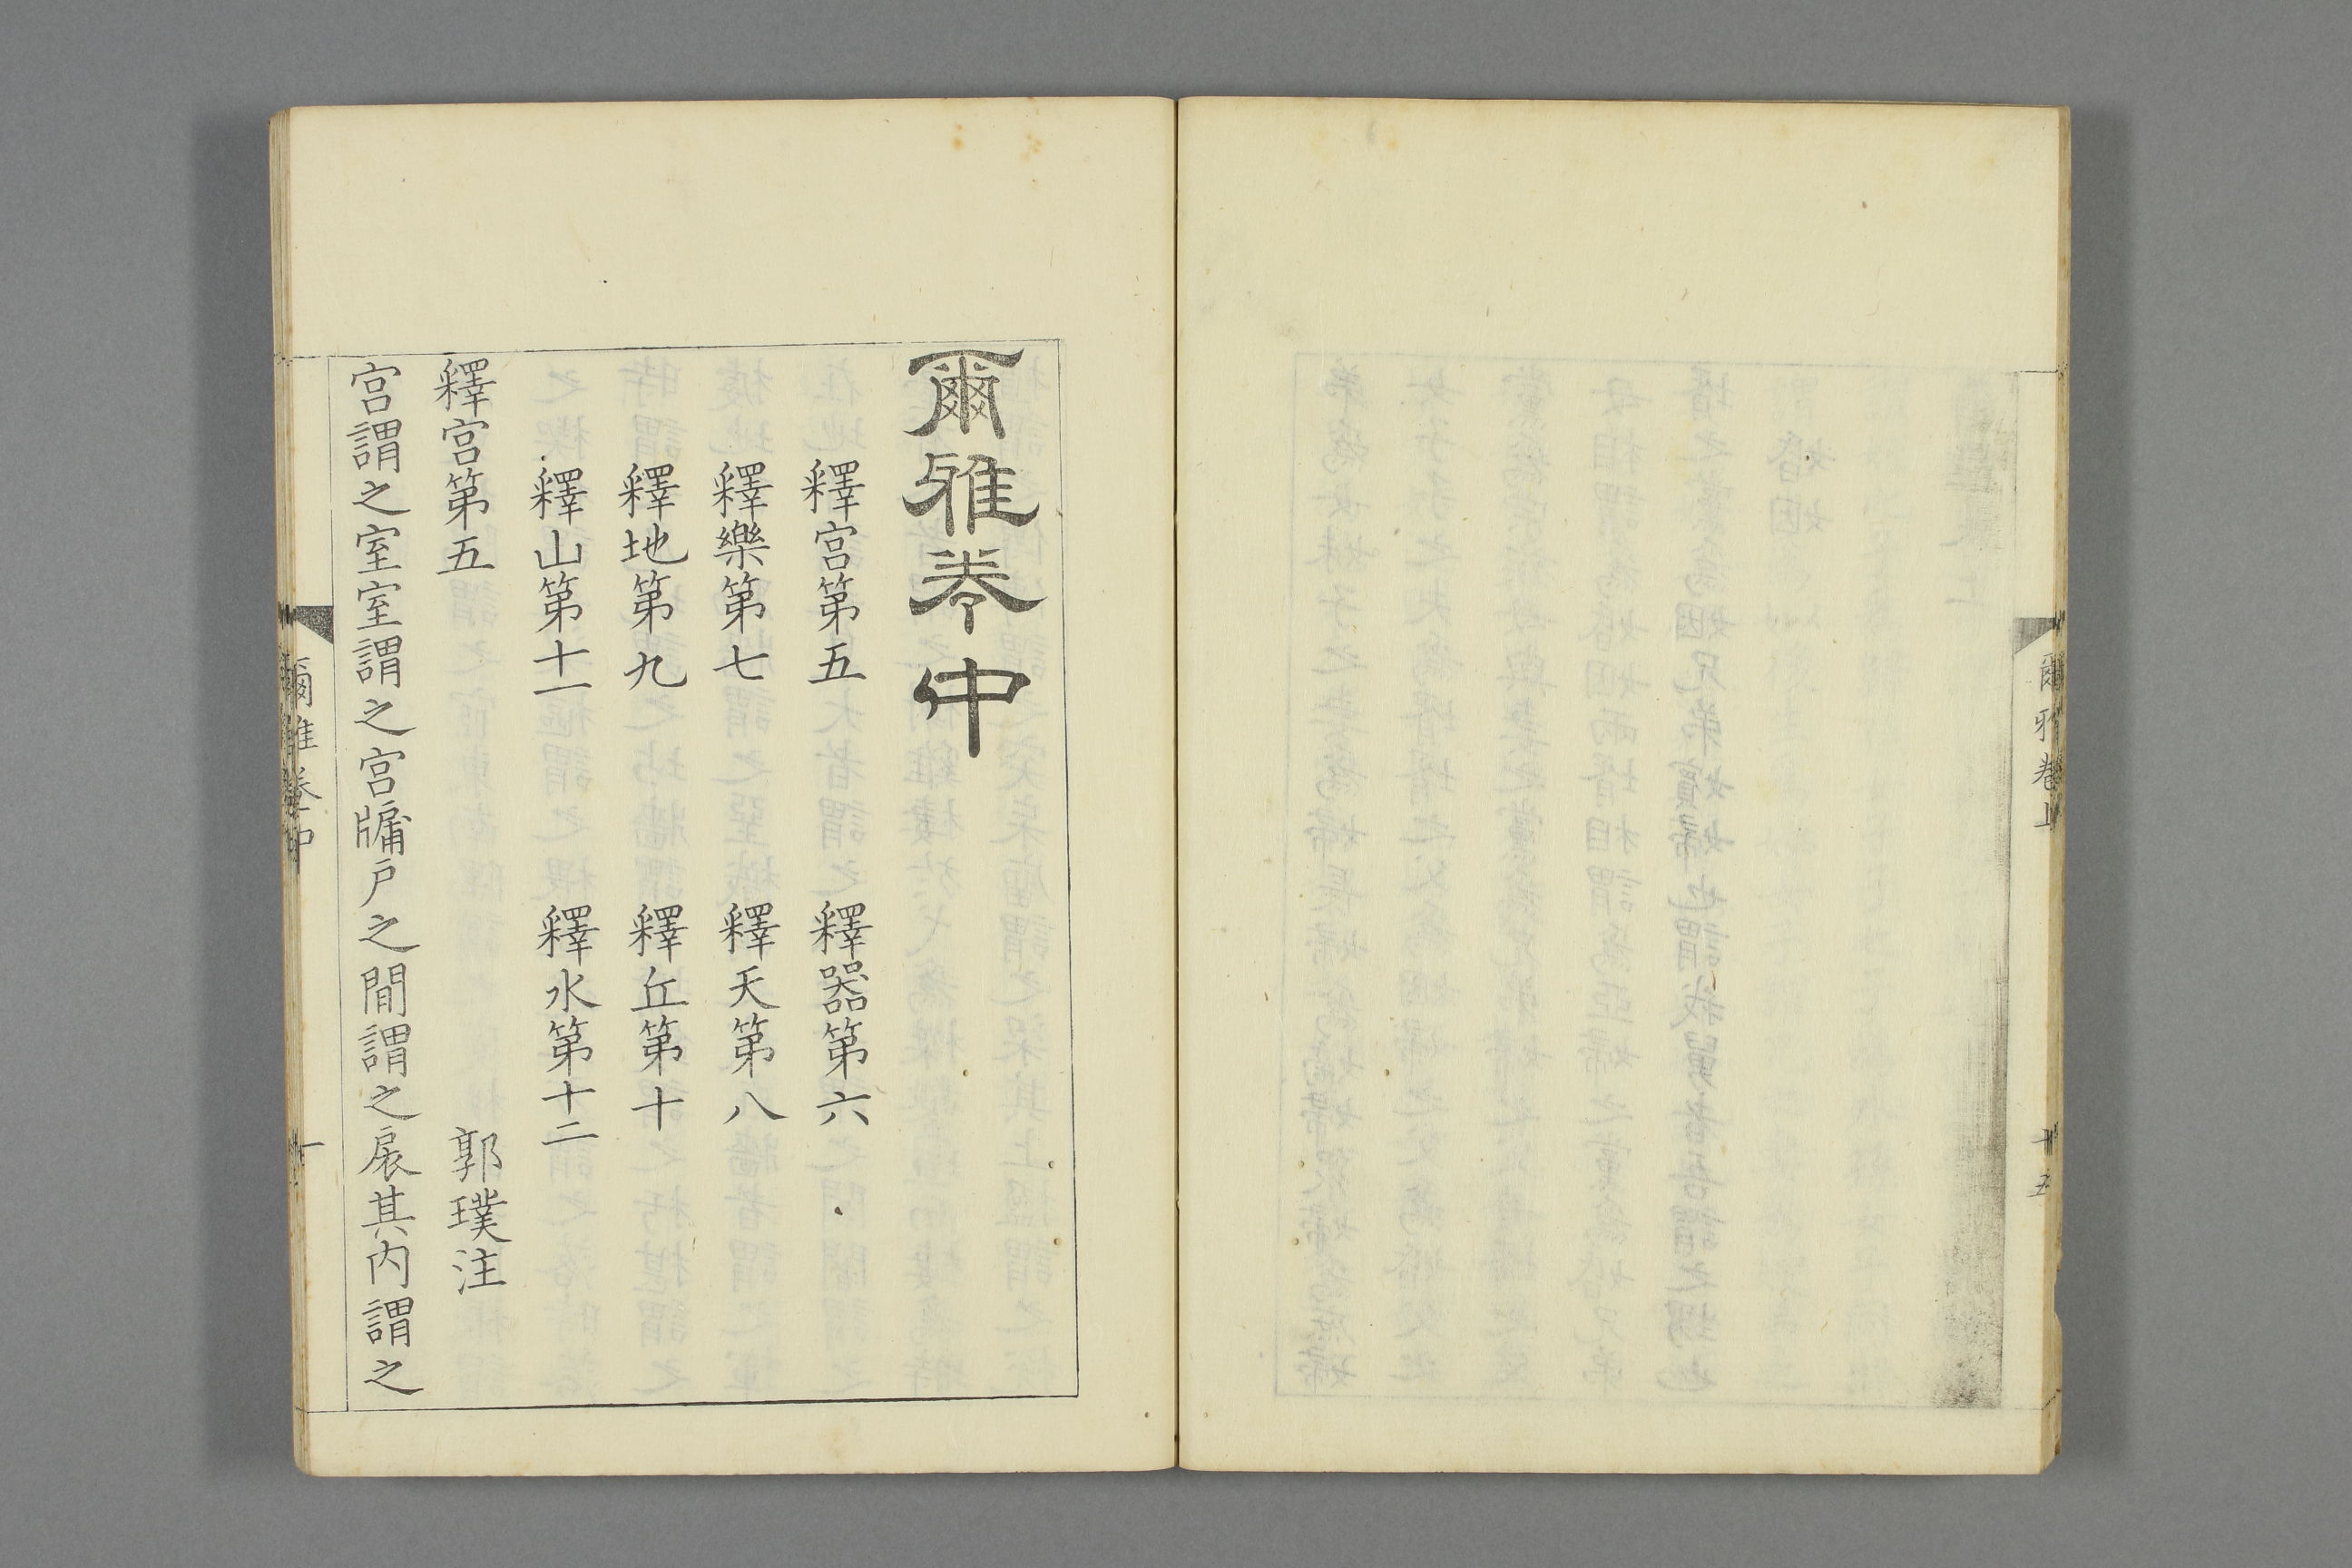 爾雅卷上
十五
爾雅卷中
釋宮第五　釋器第六
釋樂第七　釋天第八
釋地第九　釋丘第十
釋山第十一　釋水第十二
釋宮第五　郭璞注
宮謂之室室謂之宮牖戶之間謂之扆其内謂之
爾雅卷中
一